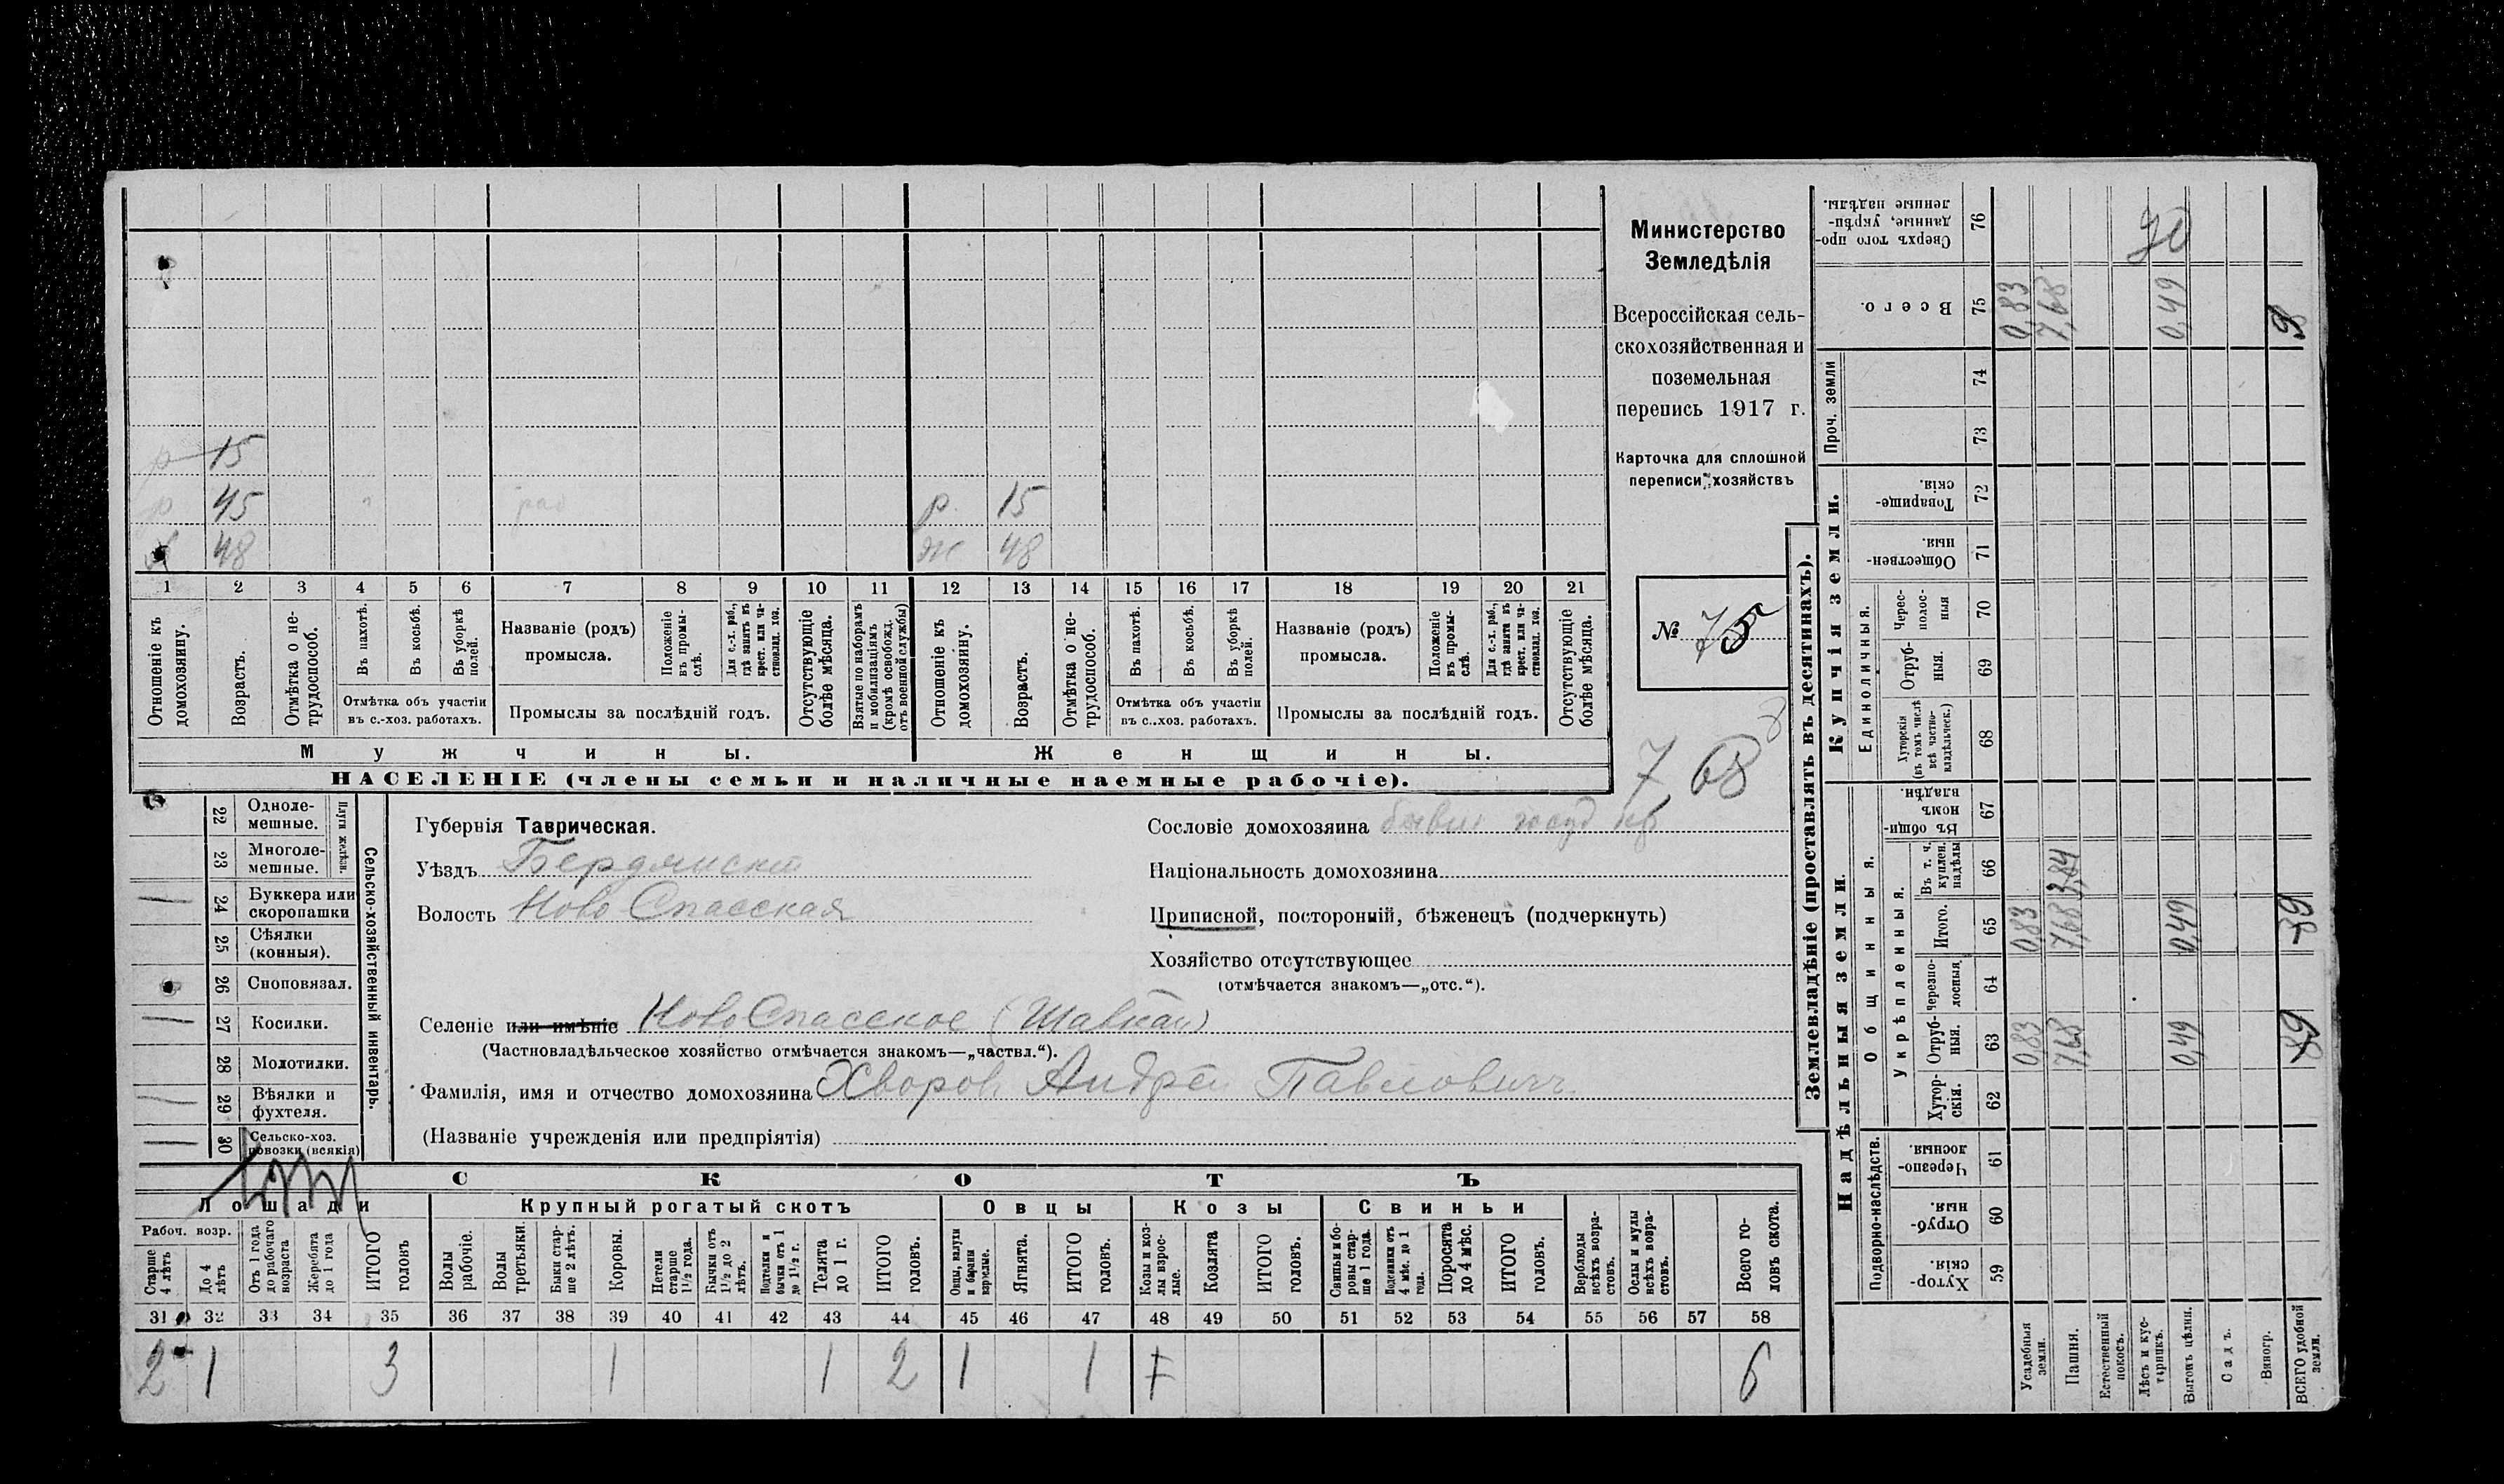 Министерство
Земледѣлія
Всероссійская сель-
скохозяйственная и
поземельная
перепись 1917 г.
Карточка для сплошной
переписи хозяйствъ
№ 75
7,68
15
45
48
р. 15
ж 48
1 2 3 4 5 6 7 8 9 10 11 12 13 14 15 16 17 18 19 20 21
Отношеніе къ домохозяину.
Возрастъ.
Отмѣтка о не-
трудоспособ.
Въ пахотѣ.
Въ косьбѣ.
Въ уборкѣ полей.
Отмѣтка объ участіи
въ с.-хоз. работахъ.
Названіе (родъ)
промысла.
Положеніе въ промы-
слѣ.
Для с.-х. раб.,
гдѣ занятъ въ
крест. или ча-
стновлад. хоз.
Промыслы за послѣдній годъ.
Отсутствующіе
болѣе мѣсяца.
Взятые по наборамъ
и мобилизаціямъ
(кромѣ освобожд.
отъ военной службы)
Отношеніе къ
домохозяину.
Возрастъ.
Отмѣтка о не-
трудоспособ.
Въ пахотѣ.
Въ косьбѣ.
Въ уборкѣ
полей.
Отмѣтка объ участіи
въ с.-хоз. работахъ.
Названіе (родъ)
промысла.
Положеніе
въ промы-
слѣ.
Для с.-х. раб.,
гдѣ занята въ
крест. или ча-
стновлад. хоз.
Промыслы за послѣдній годъ.
Отсутствующіе
болѣе мѣсяца.
Мужчины. Женщины.
НАСЕЛЕНІЕ (члены семьи и наличные наемные рабочіе).
Сельско-хозяйственный инвентарь.
Плуги желѣзн.
22 Одноле-
мешные.
23 Многоле-
мешные.
24 Буккера или
скоропашки
25 Сѣялки
(конныя).
26 Сноповязал.
27 Косилки.
28 Молотилки.
29 Вѣялки и
фухтеля.
30 Сельско-хоз.
повозки (всякія)
Губернія Таврическая.
Уѣздъ Бердянскій
Волость Ново Спасская
Сословіе домохозяина бывш госуд кр
Національность домохозяина
Приписной, посторонній, бѣженецъ (подчеркнуть)
Хозяйство отсутствующее
(отмѣчается знакомъ—„отс.“).
Селеніе или имѣніе Ново Спасское (Шавкай)
(Частновладѣльческое хозяйство отмѣчается знакомъ—„частвл.“).
Фамилія, имя и отчество домохозяина Хворов Андрей Павлович
(Названіе учрежденія или предпріятія)
СКОТЪ
Лошади Крупный рогатый скотъ Овцы Козы Свиньи
Рабоч. возр.
Старше
4 лѣтъ
До 4
лѣтъ
Отъ 1 года
до рабочаго
возраста
Жеребята
до 1 года
ИТОГО
головъ
Волы
рабочіе.
Волы
третьяки.
Быки стар-
ше 2 лѣтъ.
Коровы.
Нетели
старше
1½ года.
Бычки отъ
1½ до 2
лѣтъ.
Подтелки и
бычки отъ 1
до 1½ г.
Телята
до 1 г.
ИТОГО
головъ.
Овцы, валухи
и бараны
взрослые.
Ягнята.
ИТОГО
головъ.
Козы и коз-
лы взрос-
лые.
Козлята
ИТОГО
головъ.
Свиньи и бо-
ровы стар-
ше 1 года.
Подсвинки отъ
4 мѣс. до 1
года.
Поросята
до 4 мѣс.
ИТОГО
головъ.
Верблюды
всѣхъ возра-
стовъ.
Ослы и мулы
всѣхъ возра-
стовъ.
Всего го-
ловъ скота.
31 32 33 34 35 36 37 38 39 40 41 42 43 44 45 46 47 48 49 50 51 52 53 54 55 56 57 58
2 1 3 1 1 2 1 1 6
Землевладѣніе (проставлять въ десятинахъ).
Надѣльныя земли.
Купчія земли.
Проч. земли
Подворно-наслѣдств.
Общинныя.
Укрѣпленныя.
Единоличныя.
Хутор-
скія. 59
Отруб-
ныя. 60
Черезпо-
лосныя. 61
Хутор-
скія. 62
Отруб-
ныя. 63
Черезпо-
лосныя 64
Итого. 65
Въ т. ч.
куплен.
надѣлы 66
Въ общин-
номъ
владѣн. 67
Хуторскія
(въ томъ числѣ
всѣ частно-
владѣльческ.) 68
Отруб-
ныя. 69
Черес-
полос-
ныя 70
Обществен-
ныя. 71
Товарище-
скія. 72
73
74
Всего. 75
Сверхъ того про-
данные, укрѣп-
ленные надѣлы. 76
Усадебныя
земли. 0,83 0,83 0,83
Пашня. 7,68 7,68 3,84 7,68
Естественный
покосъ.
Лѣсъ и кус-
тарникъ.
Выгонъ цѣлин. 0,49 0,49 0,49
Садъ.
Виногр.
ВСЕГО удобной
земли. 9